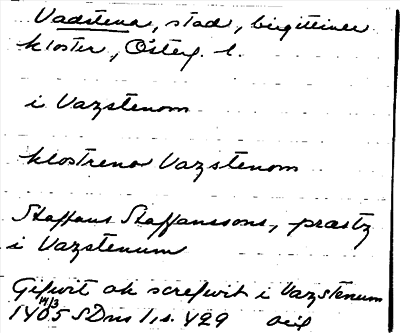 Vadstena, stad, birgittiner
kloster, Österg. l.
i Vazstenom
klostreno Vazstenom
Staffans Staffanssons, præstz
i Vazstenum
Gifwit ok screfwit i Vazstenum
14/3
1405 SDns 1, s. 429